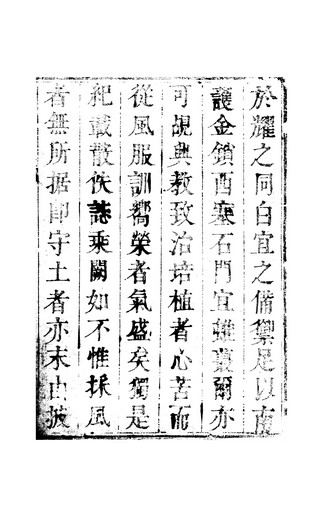 於耀之同白宜之備禦足以南
護金鎖酉塞石門宜雖叢爾亦
可覘典教致治培植者心苦而
從風服訓嚮榮者氣盛矣獨是
紀載散佚誌乘闕如不惟採風
者無所据卽守土者亦末由披